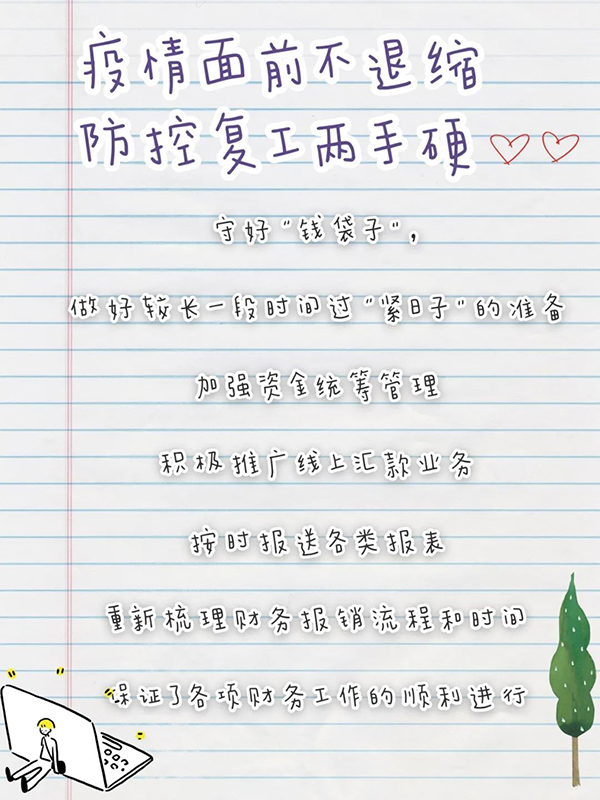 疫情面前不退缩
防控复工两手硬
守好“钱袋子”，
做好较长一段时间过“紧日子”的准备
加强资金统筹管理
积极推广线上汇款业务
按时报送各类报表
重新梳理财务报销流程和时间
保证了各项财务工作的顺利进行